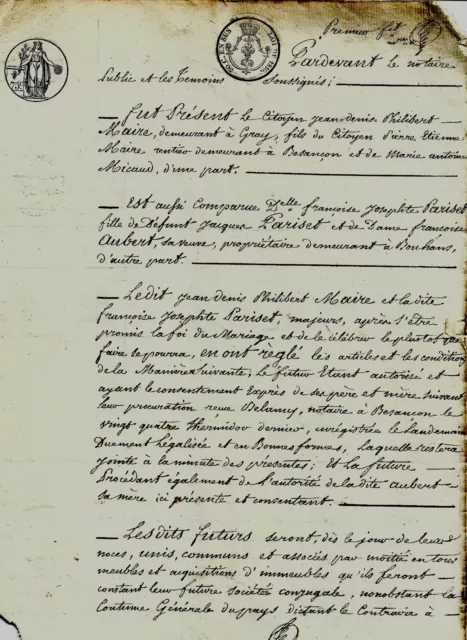 Premier f.et
Pardevant Le notaire
Public et les Temoins Soussignés;
Fut Présent Le Citoyen jean-denis Philibert
Maire, demeurant à Gray, fils du Citoyen Pierre Etienne
Maire rentier demeurant à Besançon et de Marie antoine
Micaud, d'une part.
Est aussi Comparue D.elle françoise Josephte Pariset
fille de Défunt Jacques Pariset et de Dame françoise
Aubert, sa veuve, propriétaire demeurant à Bouhans,
d'autre part.
Ledit jean denis Philibert Maire et la dite
françoise Josephte Pariset, majeurs, après s'être
promis la foi du Mariage et de le célébrer le plustot que
faire se pourra, en ont règlé les articles et les conditions
de la Manière suivante; Le futur Etant autorisé et
ayant le consentement Exprès de ses père et mère suivant
leur procuration reçue Belamy, notaire à Besançon le
vingt quatre Thermidor dernier, enregistrée le Landemain
Duement Légalisée et en Bonnes formes, Laquelle restera
jointe à la minute des présentes; Et La future
Procédant également de L'autorité de la dite Aubert
sa mère ici présente et consentant.
Lesdits futurs seront, dès le jour de leurs
noces, unis, communs et associés par moitié en tous
meubles et acquisitions d'immeubles qu'ils feront
constant leur future société conjugale, nonobstant la
Coutume Générale du pays dictant le Contraire à